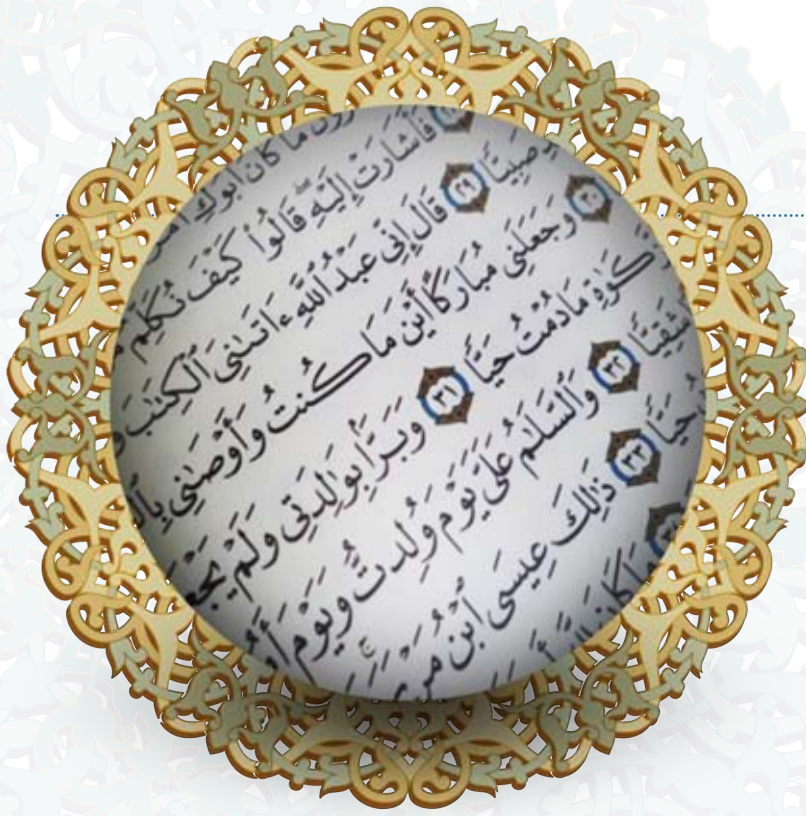 مَا كَانَ أَبُوكِ
فَأَشَارَتْ إِلَيْهِ ۖ قَالُوا۟ كَيْفَ نُكَلِّمُ
صَبِيًّا ٢٩ قَالَ إِنِّى عَبْدُ ٱللَّهِ ءَاتَىٰنِىَ ٱلْكِتَـٰبَ
٣٠ وَجَعَلَنِى مُبَارَكًا أَيْنَ مَا كُنتُ وَأَوْصَـٰنِى
كَوٰةِ مَا دُمْتُ حَيًّا ٣١ وَبَرًّۢا بِوَٰلِدَتِى وَلَمْ
شَقِيًّا ٣٢ وَٱلسَّلَـٰمُ عَلَىَّ يَوْمَ وُلِدتُّ وَيَوْمَ
حَيًّا ٣٣ ذَٰلِكَ عِيسَى ٱبْنُ
كَانَ